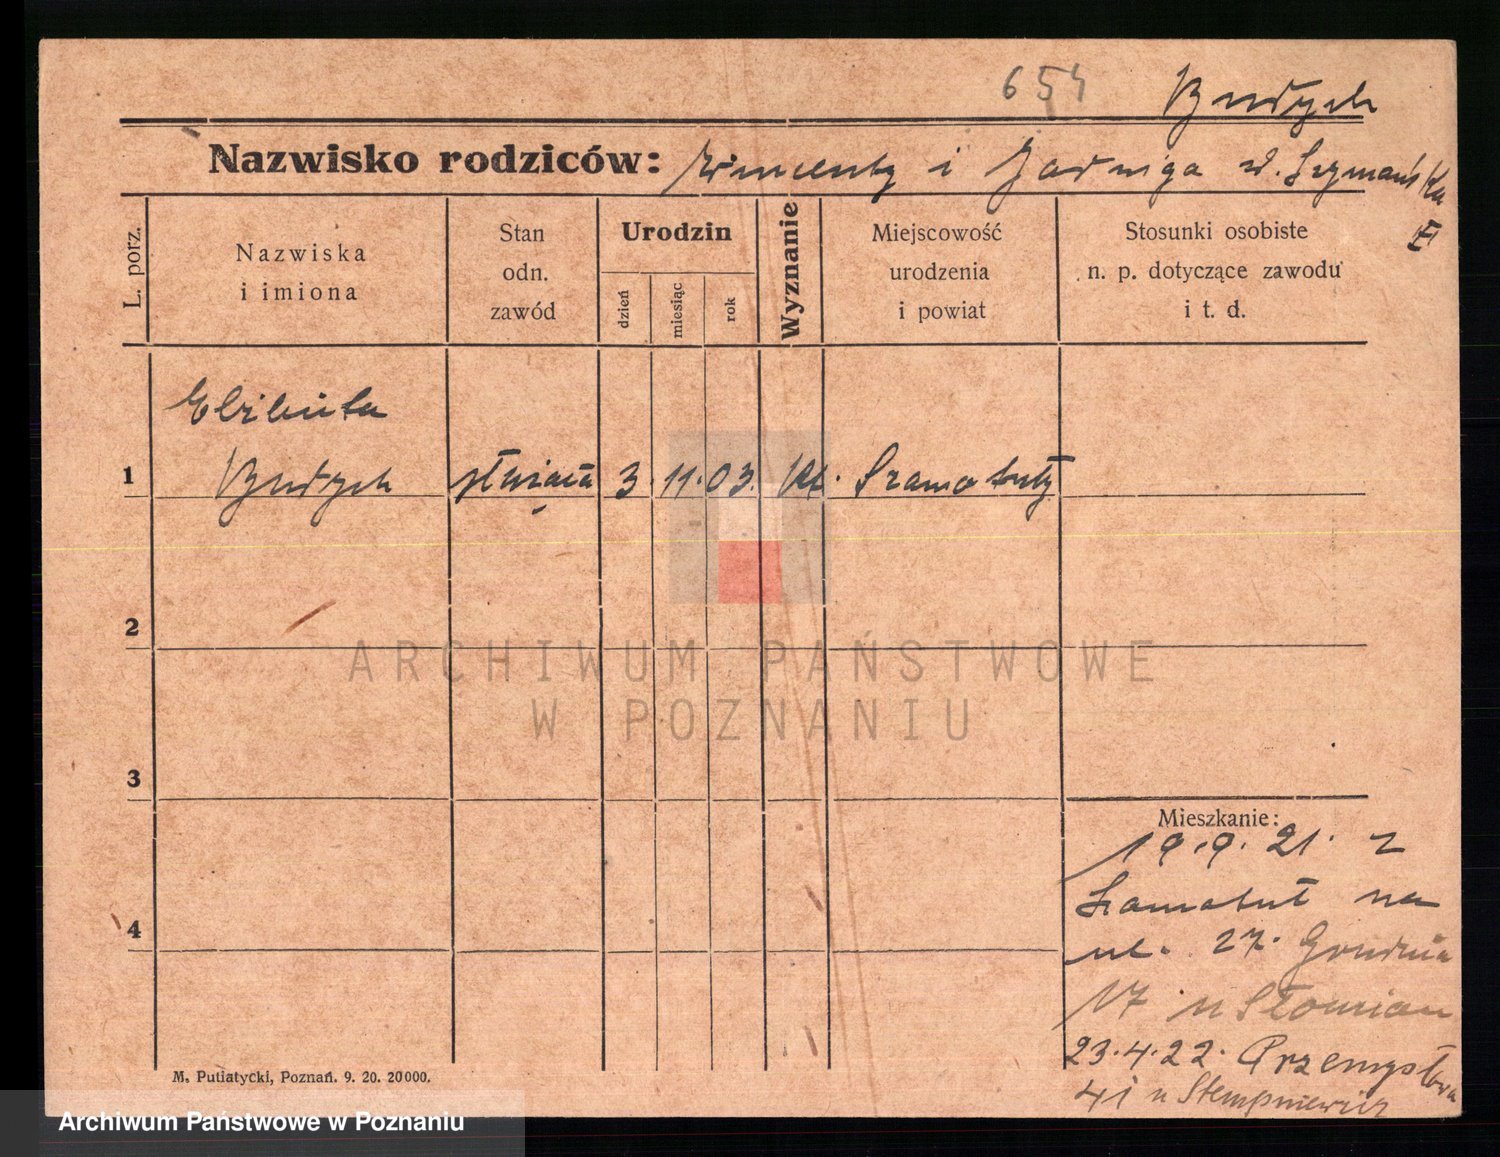 654 Budych
Nazwisko rodziców: Wincenty i Jadwiga z d. Szymańska
L. porz.
Nazwiska
i imiona
Stan
odn.
zawód
Urodzin
dzień
miesiąc
rok
Wyznanie
Miejscowość
urodzenia
i powiat
Stosunki osobiste
n. p. dotyczące zawodu
i t. d.
Elżbieta
1 Budych służąca 3. 11. 03. kt. Szamotuły
2
3
4
Mieszkanie:
19.9.21. z
Szamotuł na
ul. 27. Grudnia
17 u Słomian
23.4.22. Przemysłowa
41 u Stempniewicz
M. Putiatycki, Poznań. 9. 20. 20000.
ARCHIWUM PAŃSTWOWE
W POZNANIU
Archiwum Państwowe w Poznaniu